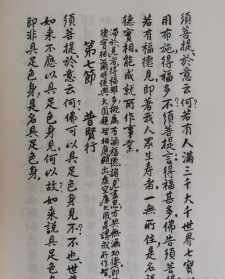 須菩提於意云何若有人滿三千大千世界七寶
用布施得福多不須菩提言得福甚多佛告須菩提
若有福德見即著我人眾生壽者一無所住是名
德寶相能成就所作事業
第七節 普賢行
須菩提於意云何佛可以具足色身見不不也世
如來不應以具足色身見何以故如來說具足色
即非具足色身是名具足色身